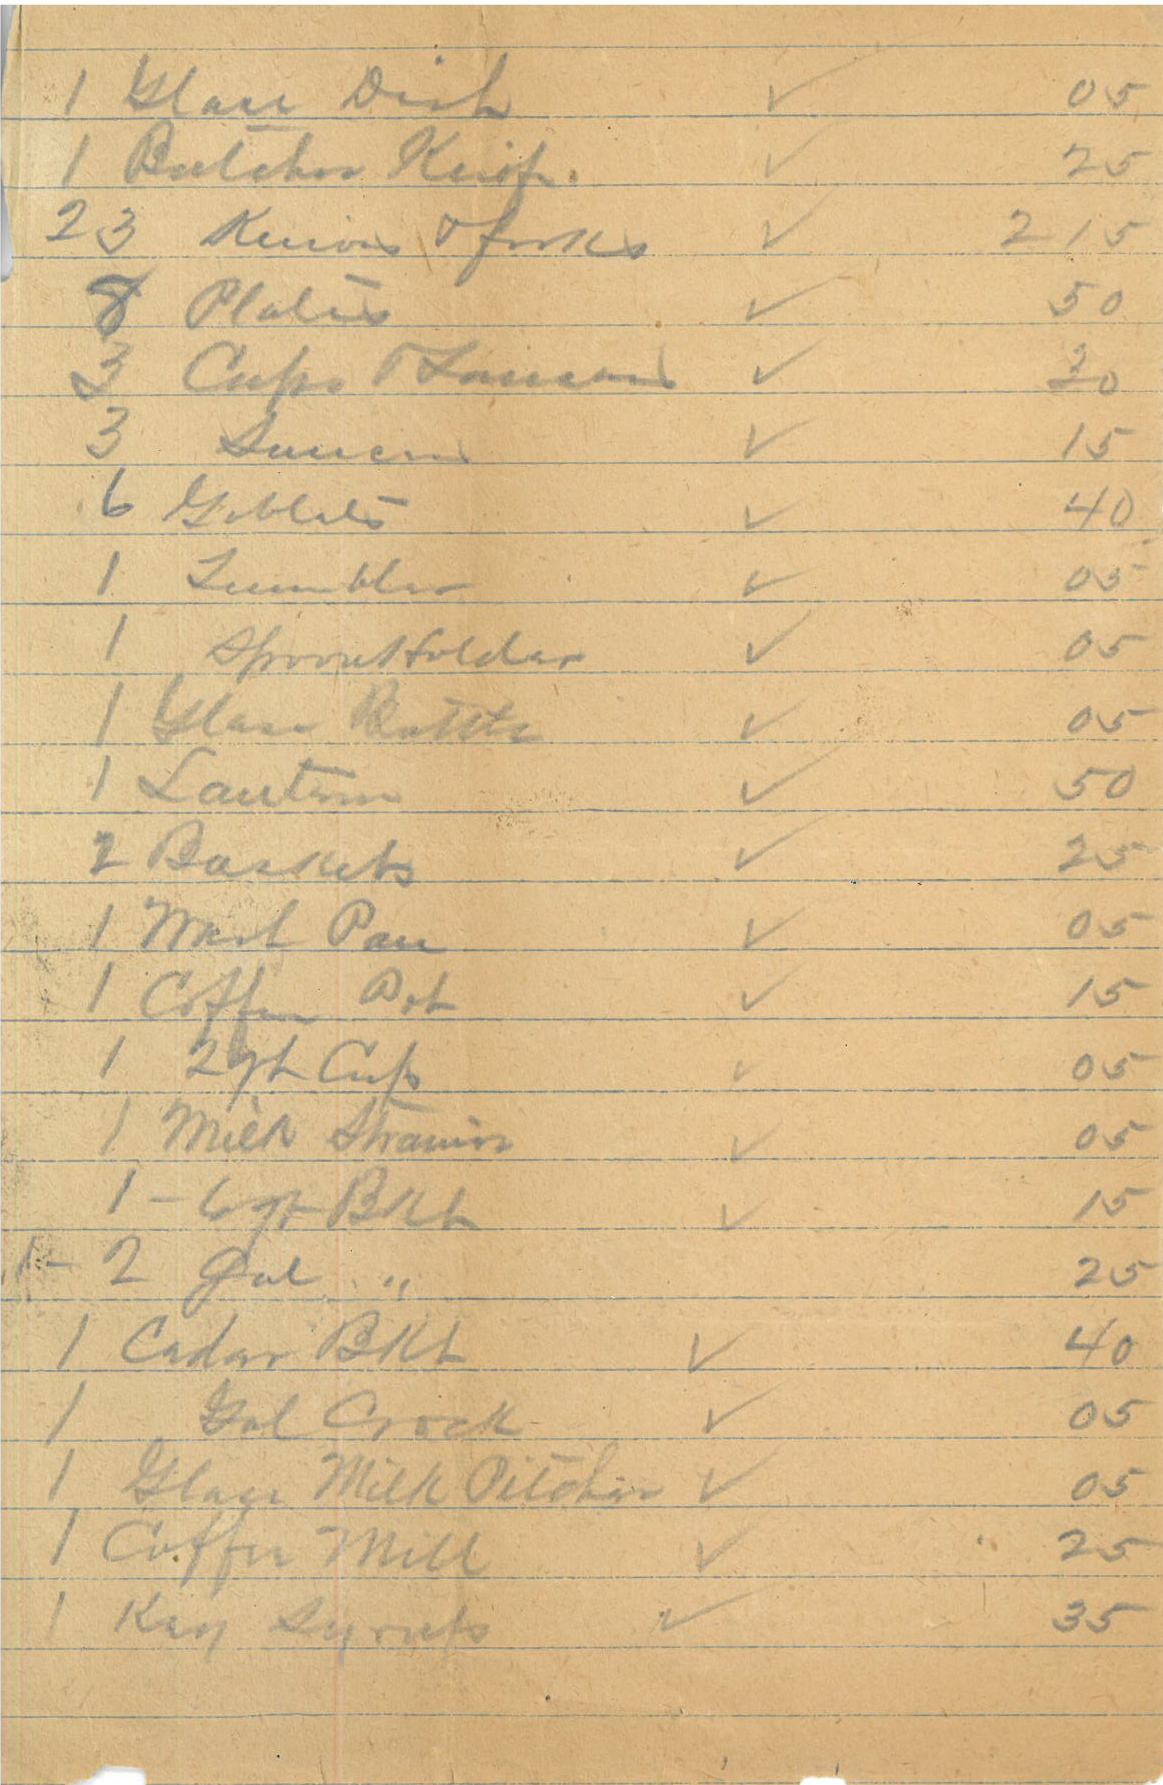 1 Glass Dish ✓ 05
1 Butcher Knife. ✓ 25
23 Knives & forks ✓ 2 15
8 Plates ✓ 50
3 Cups & Saucers ✓ 20
3 Saucers ✓ 15
6 Goblets ✓ 40
1 Tumbler ✓ 05
1 Spoon Holder ✓ 05
1 Glass Bottle ✓ 05
1 Lantern ✓ 50
2 Baskets ✓ 25
1 Wash Pan ✓ 05
1 Coffee Pot ✓ 15
1 2 qt Cup ✓ 05
1 Milk Strainer ✓ 05
1 - 6 qt Bkt ✓ 15
1 - 2 Gal " 25
1 Cedar Bkt ✓ 40
1 Gal Crock ✓ 05
1 Glass Milk Pitcher ✓ 05
1 Coffee Mill ✓ 25
1 Keg Syrup ✓ 35